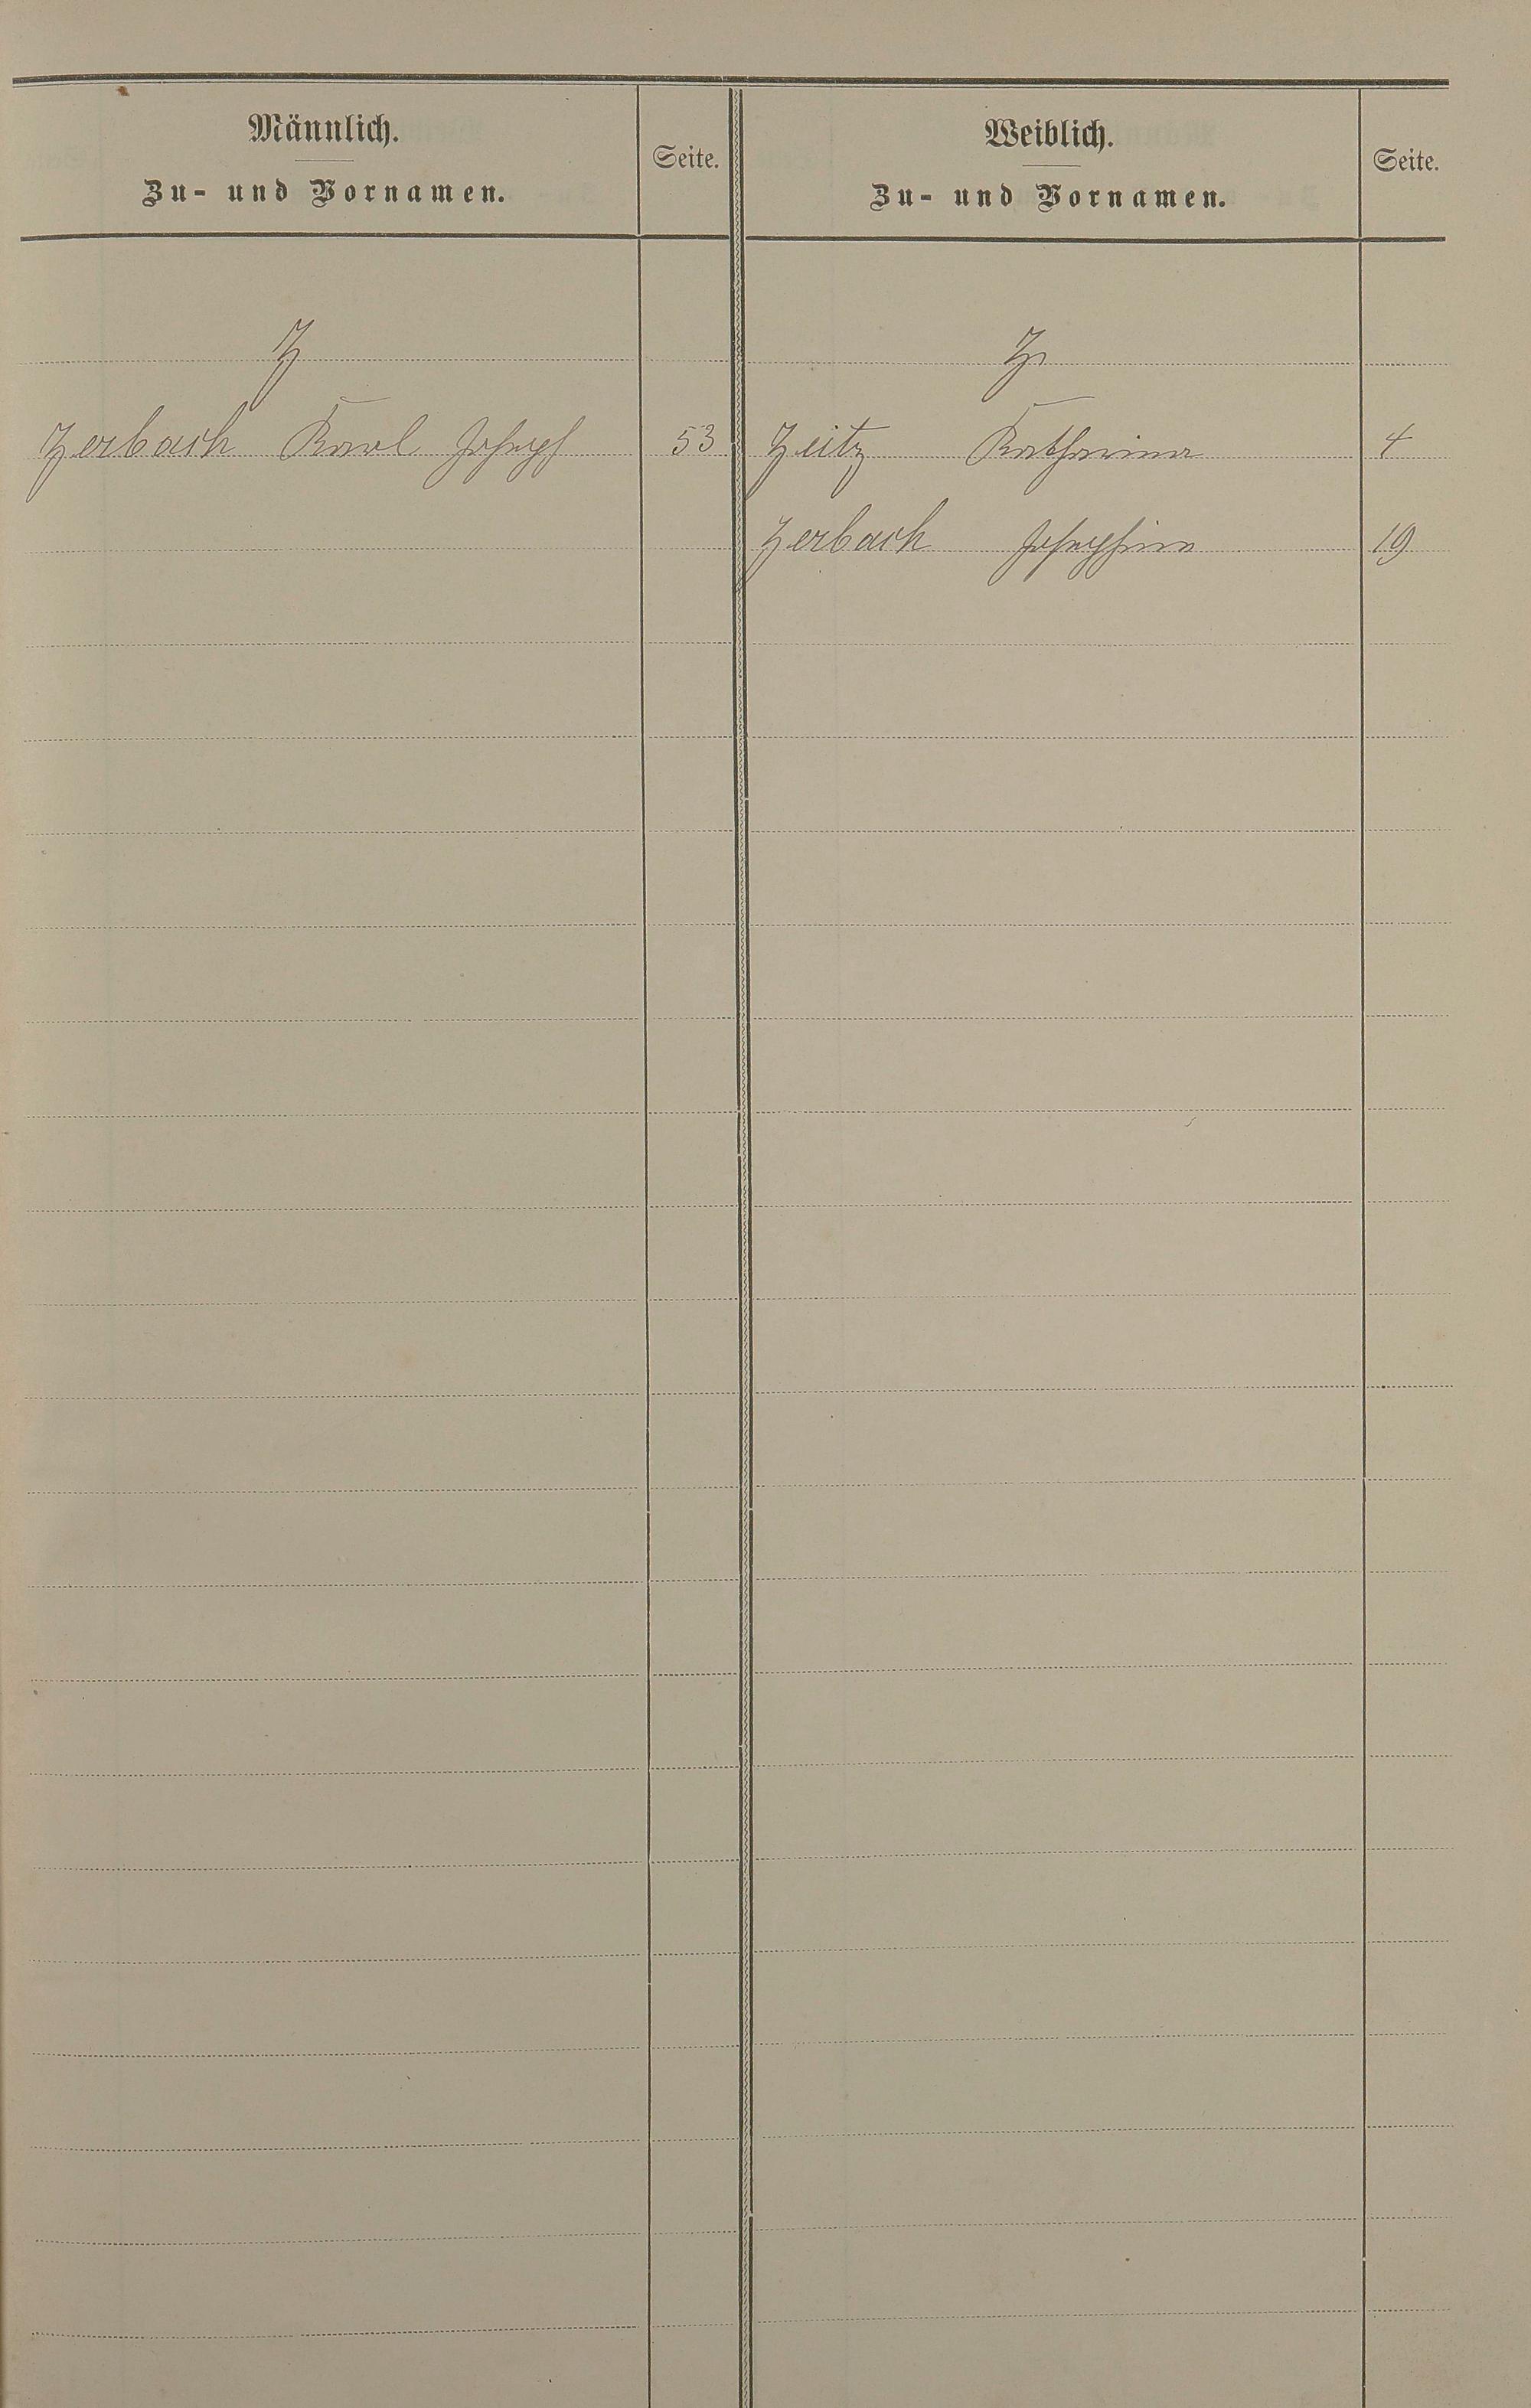 Männlich.
Zu- und Vornamen.
Seite.
Weiblich.
Zu- und Vornamen.
Seite.
Z
Z
Zerbach Karl Joseph 53
Zeitz Katharina 4
Zerbach Josephina 19